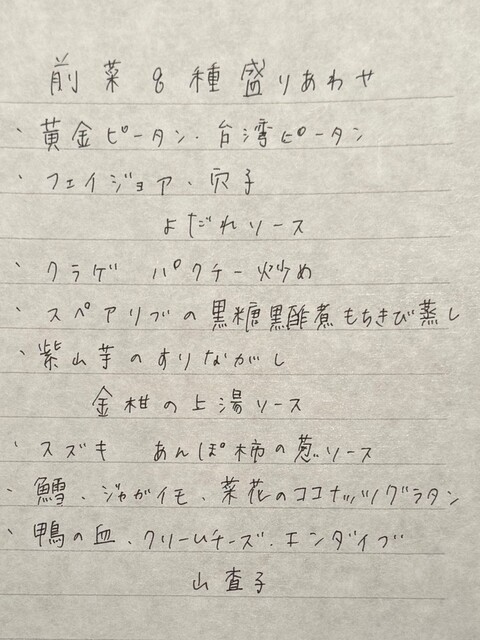 前菜8種盛りあわせ
、黄金ピータン、台湾ピータン
、フェイジョア、穴子
よだれソース
、クラゲ パクチー炒め
、スペアリブの黒糖黒酢煮もちきび蒸し
、紫山芋のすりながし
金柑の上湯ソース
、スズキ あんぽ柿の葱ソース
、鱈、ジャガイモ、菜花のココナッツグラタン
、鴨の血、クリームチーズ、エンダイブ
山査子